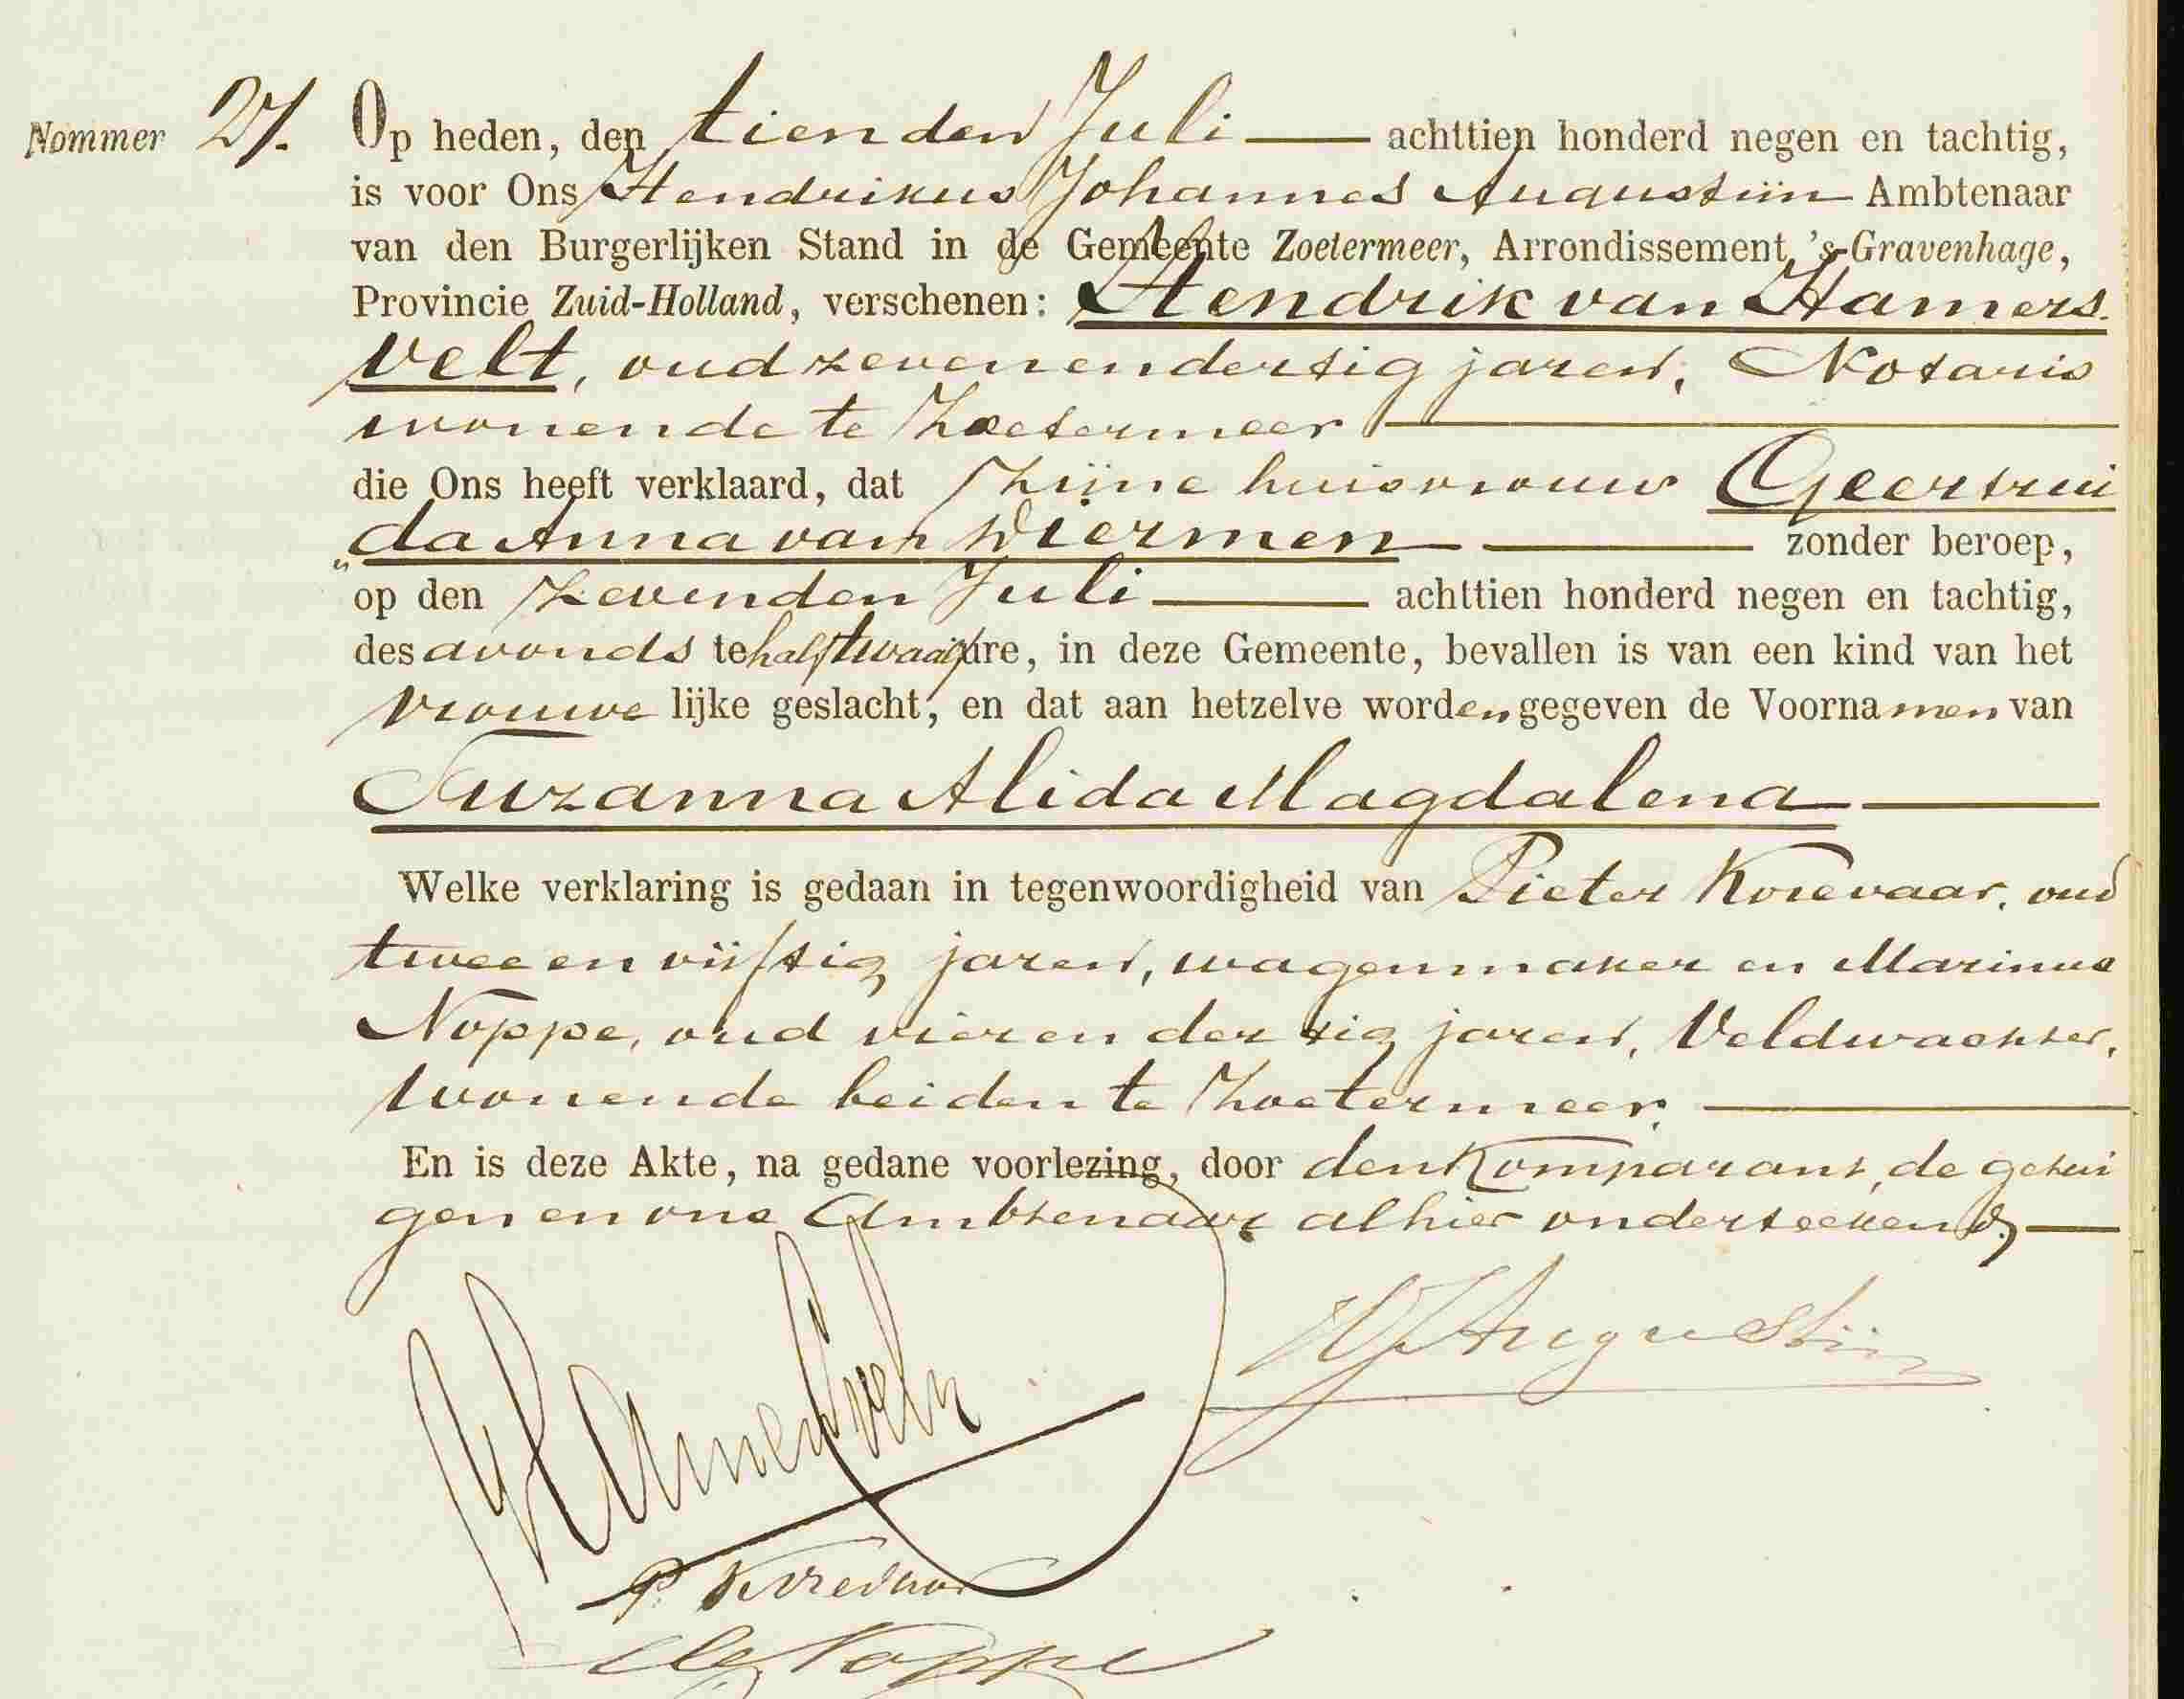 Nommer 27. Op heden, den tienden Juli achttien honderd negen en tachtig,
is voor Ons Hendrikus Johannes Augustijn Ambtenaar
van den Burgerlijken Stand in de Gemeente Zoetermeer, Arrondissement 's-Gravenhage,
Provincie Zuid-Holland, verschenen: Hendrik van Hamers
velt, oud zevenendertig jaren, Notaris
wonende te Zoetermeer
die Ons heeft verklaard, dat zijne huisvrouw Geertrui
„da Anna van Diermen zonder beroep,
op den zevenden Juli achttien honderd negen en tachtig,
des avonds te half twaalf ure, in deze Gemeente, bevallen is van een kind van het
vrouwelijke geslacht, en dat aan hetzelve worden gegeven de Voornamen van
Suzanna Alida Magdalena
Welke verklaring is gedaan in tegenwoordigheid van Pieter Korevaar, oud
twee en vijftig jaren, wagenmaker en Marinus
Noppe, oud vier en dertig jaren, Veldwachter,
wonende beiden te Zoetermeer.
En is deze Akte, na gedane voorlezing, door den Komparant, de getui
gen en ons Ambtenaar alhier onderteekend,
HJAugustijn
HvHamersvelt
P. Korevaar
M Noppe